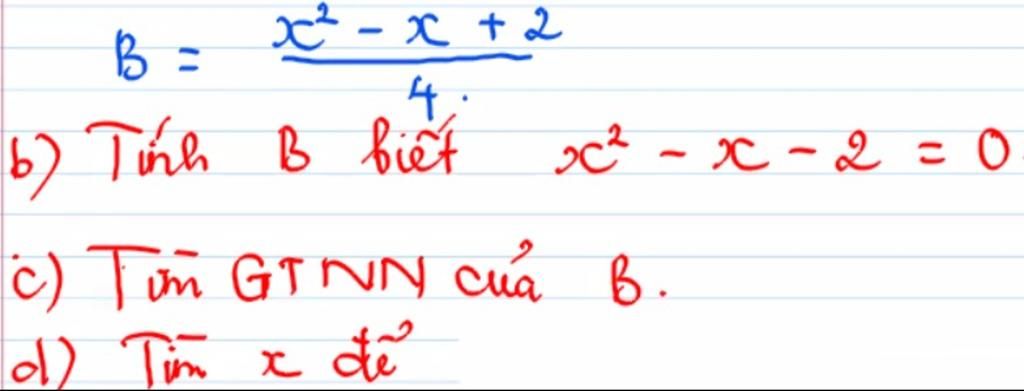 B = x² - x + 2 / 4.
b) Tính B biết x² - x - 2 = 0
c) Tìm GTNN của B.
d) Tìm x để